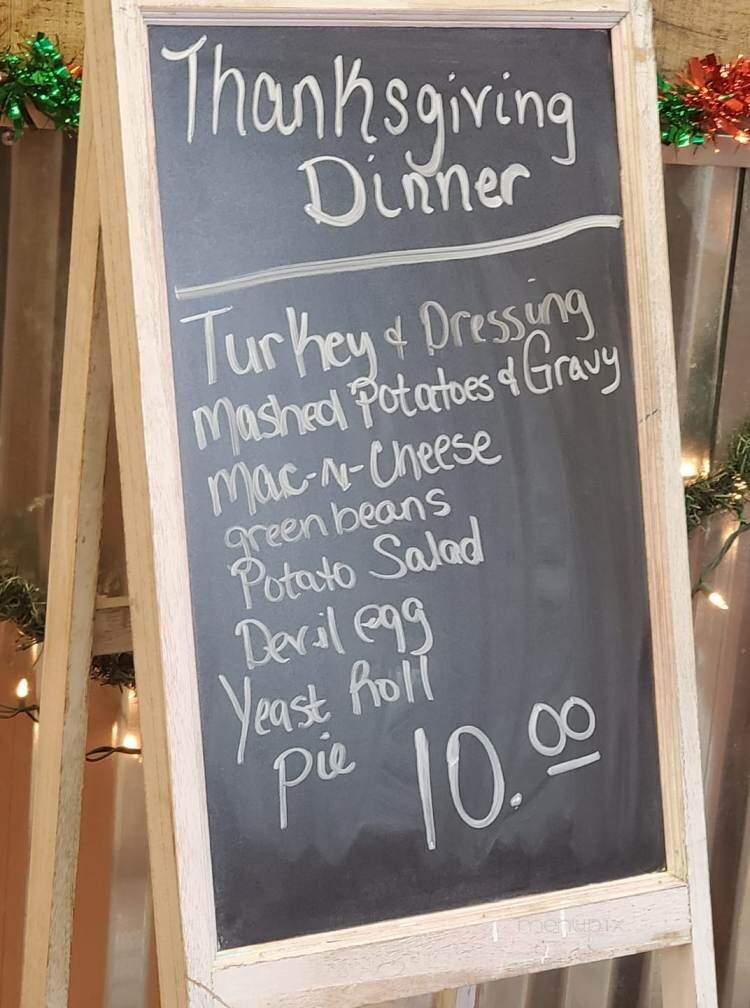 Thanksgiving
Dinner
Turkey & Dressing
Mashed Potatoes & Gravy
Mac-N-Cheese
green beans
Potato Salad
Devil egg
Yeast Roll
Pie 10.00